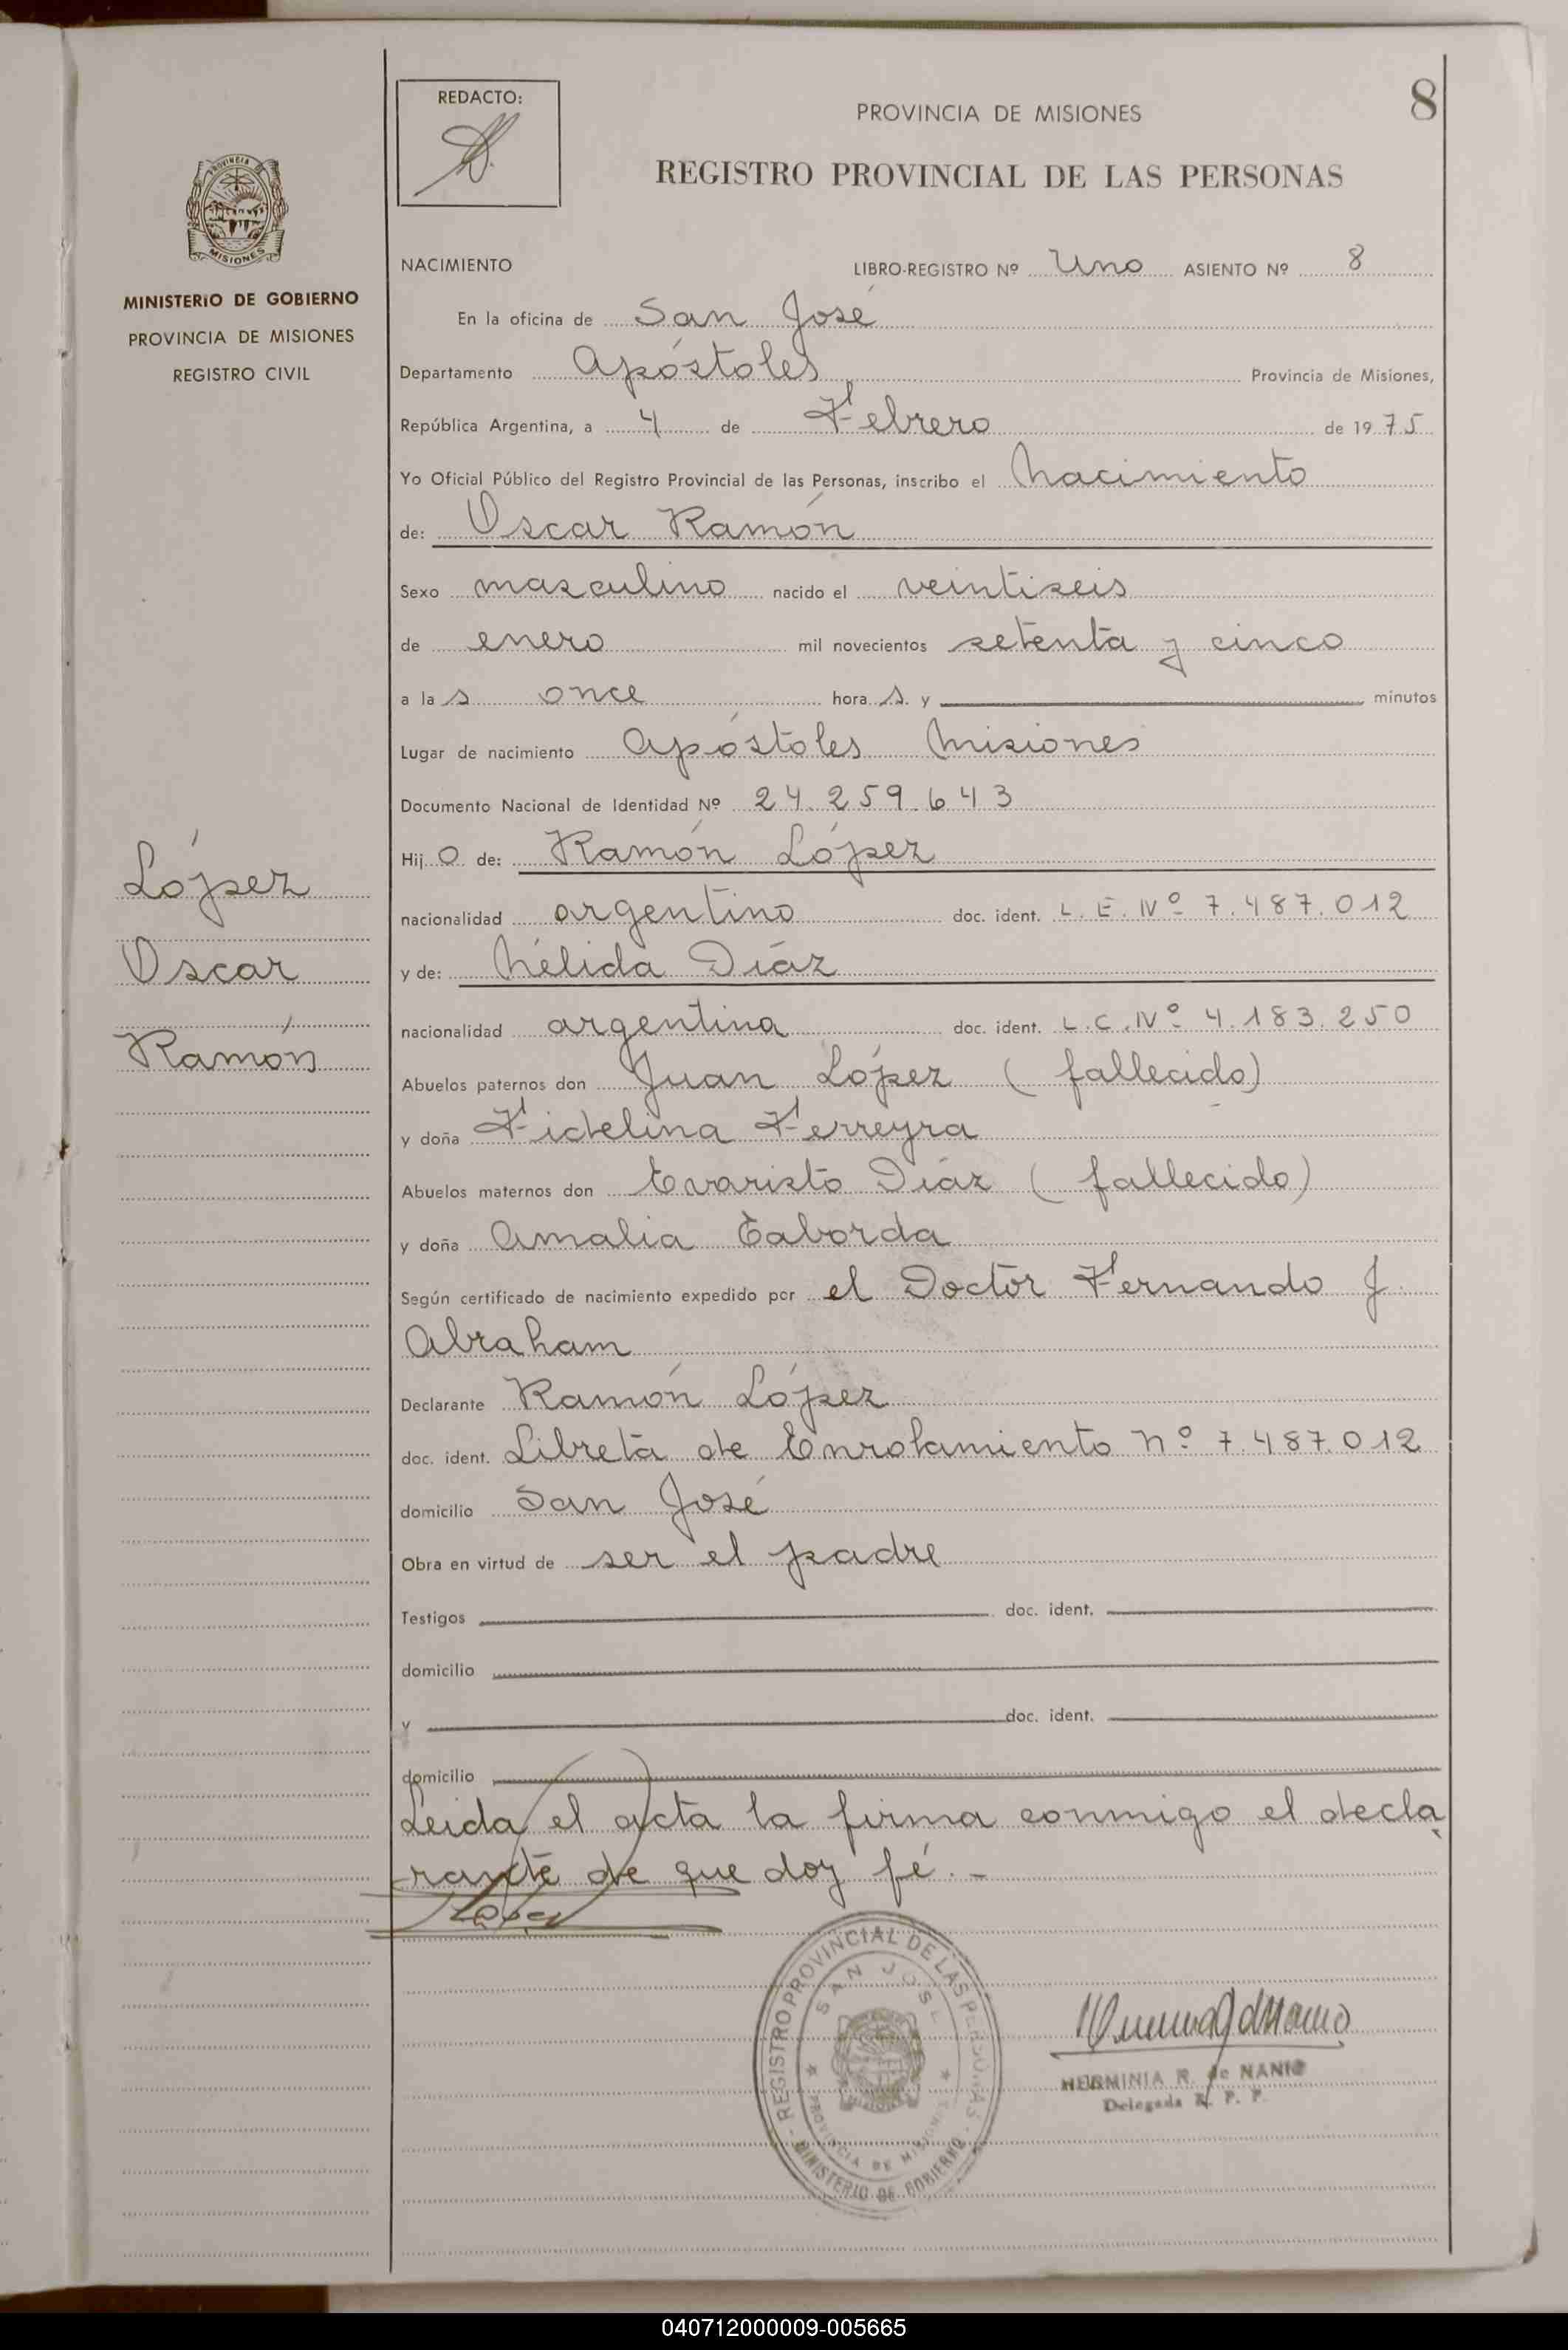 REDACTO:
8
PROVINCIA DE MISIONES
REGISTRO PROVINCIAL DE LAS PERSONAS
PROVINCIA
MISIONES
MINISTERIO DE GOBIERNO
PROVINCIA DE MISIONES
REGISTRO CIVIL
NACIMIENTO LIBRO-REGISTRO Nº Uno ASIENTO Nº 8
En la oficina de San José
Departamento Apóstoles Provincia de Misiones,
República Argentina, a 4 de Febrero de 1975
Yo Oficial Público del Registro Provincial de las Personas, inscribo el Nacimiento
de: Oscar Ramón
Sexo masculino nacido el veintiseis
de enero mil novecientos setenta y cinco
a las once horas. y minutos
Lugar de nacimiento Apóstoles Misiones
Documento Nacional de Identidad Nº 24.259.643
Hijo de: Ramón López
nacionalidad argentino doc. ident. L. E. Nº 7.487.012
y de: Nélida Díaz
nacionalidad argentina doc. ident. L.C. Nº 4.183.250
Abuelos paternos don Juan López ( fallecido)
y doña Fidelina Ferreyra
Abuelos maternos don Evaristo Díaz ( fallecido)
y doña Amalia Taborda
Según certificado de nacimiento expedido por el Doctor Fernando J.
Abraham
Declarante Ramón López
doc. ident. Libreta de Enrolamiento Nº 7.487.012
domicilio San José
Obra en virtud de ser el padre
Testigos doc. ident.
domicilio
y doc. ident.
domicilio
Leida el acta la firma conmigo el decla
rante de que doy fé.-
López
Oscar
Ramón
REGISTRO PROVINCIAL DE LAS PERSONAS
SAN JOSE
PROVINCIA DE MISIONES
MINISTERIO DE GOBIERNO
HERMINIA R. de NANIO
Delegada R. P. P.
040712000009-005665